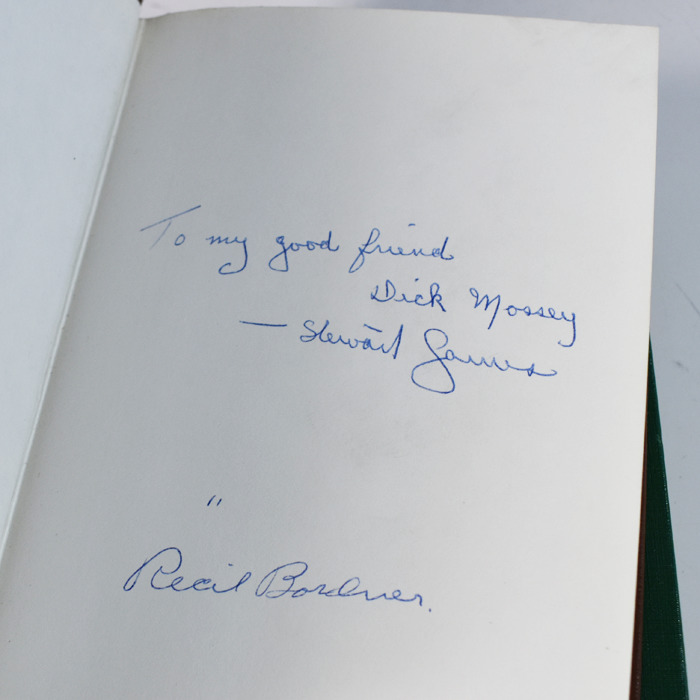 To my good friend
Dick Mossey
— Stewart James
"
Recil Bordner.